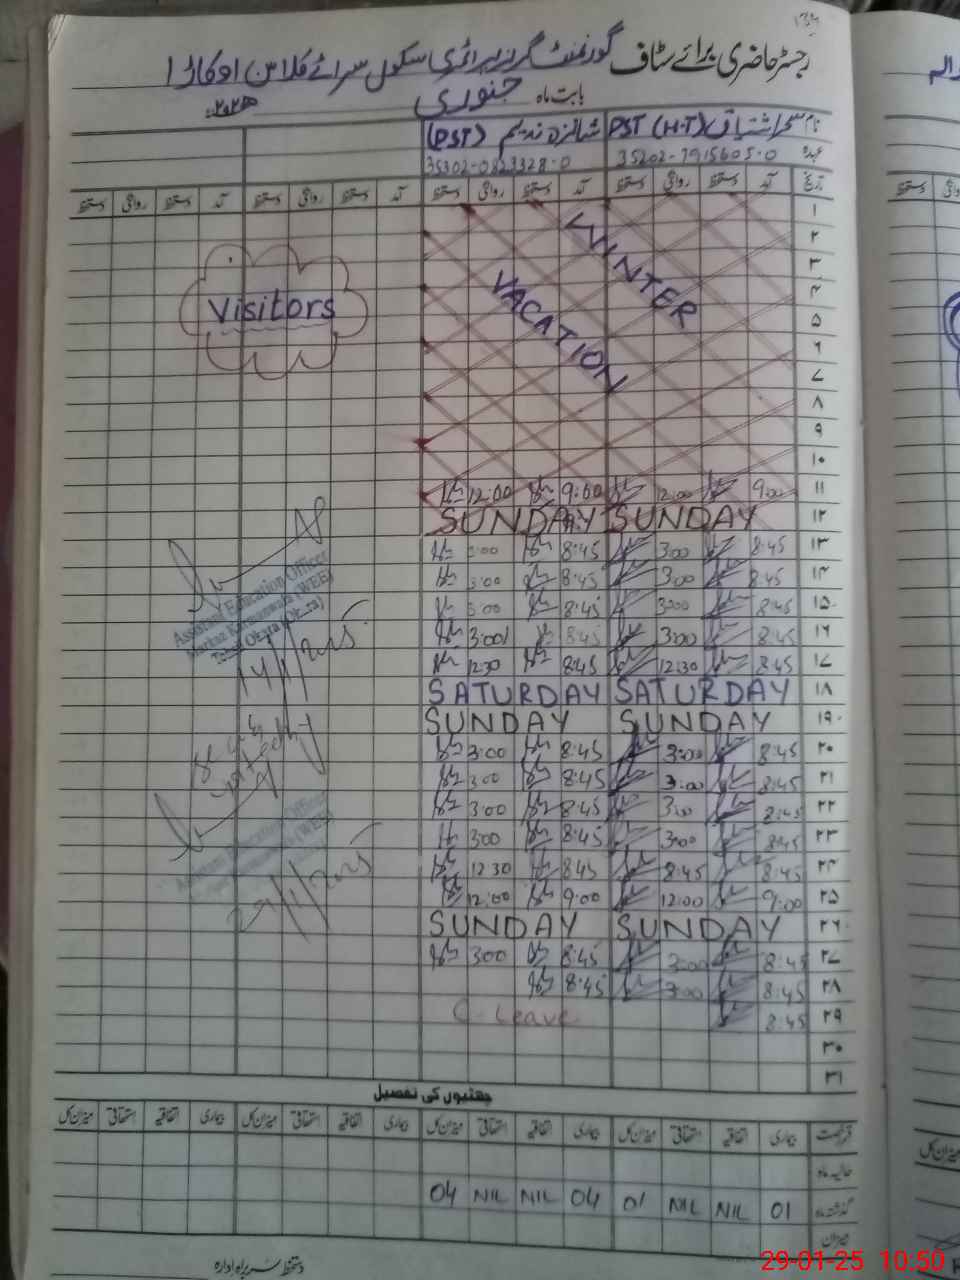 رجسٹر حاضری برائے سٹاف گورنمنٹ گرلز پرائمری سکول سرائے فلاں اوکاڑا
بابت ماہ جنوری
نام سحر اشتیاق PST (H.T) شانزہ ندیم (PST)
عہدہ 35202-7915605-0 35302-0823328-0
تاریخ آمد دستخط روانگی دستخط آمد دستخط روانگی دستخط آمد دستخط روانگی دستخط آمد دستخط روانگی دستخط
۱
۲
۳
۴
۵
۶
۷
۸
۹
۱۰
WINTER
VACATION
Visitors
۱۱ 9:00 12:00 9:00 12:00
۱۲ SUNDAY SUNDAY
۱۳ 8:45 3:00 8:45 3:00
۱۴ 8:45 3:00 8:45 3:00
۱۵ 8:45 3:00 8:45 3:00
۱۶ 8:45 3:00 8:45 3:00
۱۷ 8:45 12:30 8:45 12:30
۱۸ SATURDAY SATURDAY
۱۹ SUNDAY SUNDAY
۲۰ 8:45 3:00 8:45 3:00
۲۱ 8:45 3:00 8:45 3:00
۲۲ 8:45 3:00 8:45 3:00
۲۳ 8:45 3:00 8:45 3:00
۲۴ 8:45 8:45 8:45 12:30
۲۵ 9:00 12:00 9:00 12:00
۲۶ SUNDAY SUNDAY
۲۷ 8:45 3:00 8:45 3:00
۲۸ 8:45 3:00 8:45
۲۹ 8:45 C-Leave
۳۰
۳۱
Assistant Education Officer
Markaz (WEE)
Tehsil Okara
14/1/2025
Assistant Education Officer
(WEE)
29/1/2025
چھٹیوں کی تفصیل
بیماری اتفاقیہ استحقاقی میزان کل بیماری اتفاقیہ استحقاقی میزان کل بیماری اتفاقیہ استحقاقی میزان کل بیماری اتفاقیہ استحقاقی میزان کل
حالیہ ماہ
گذشتہ ماہ 01 NIL NIL 01 04 NIL NIL 04
میزان
دستخط سربراہ ادارہ
29-01-25 10:50